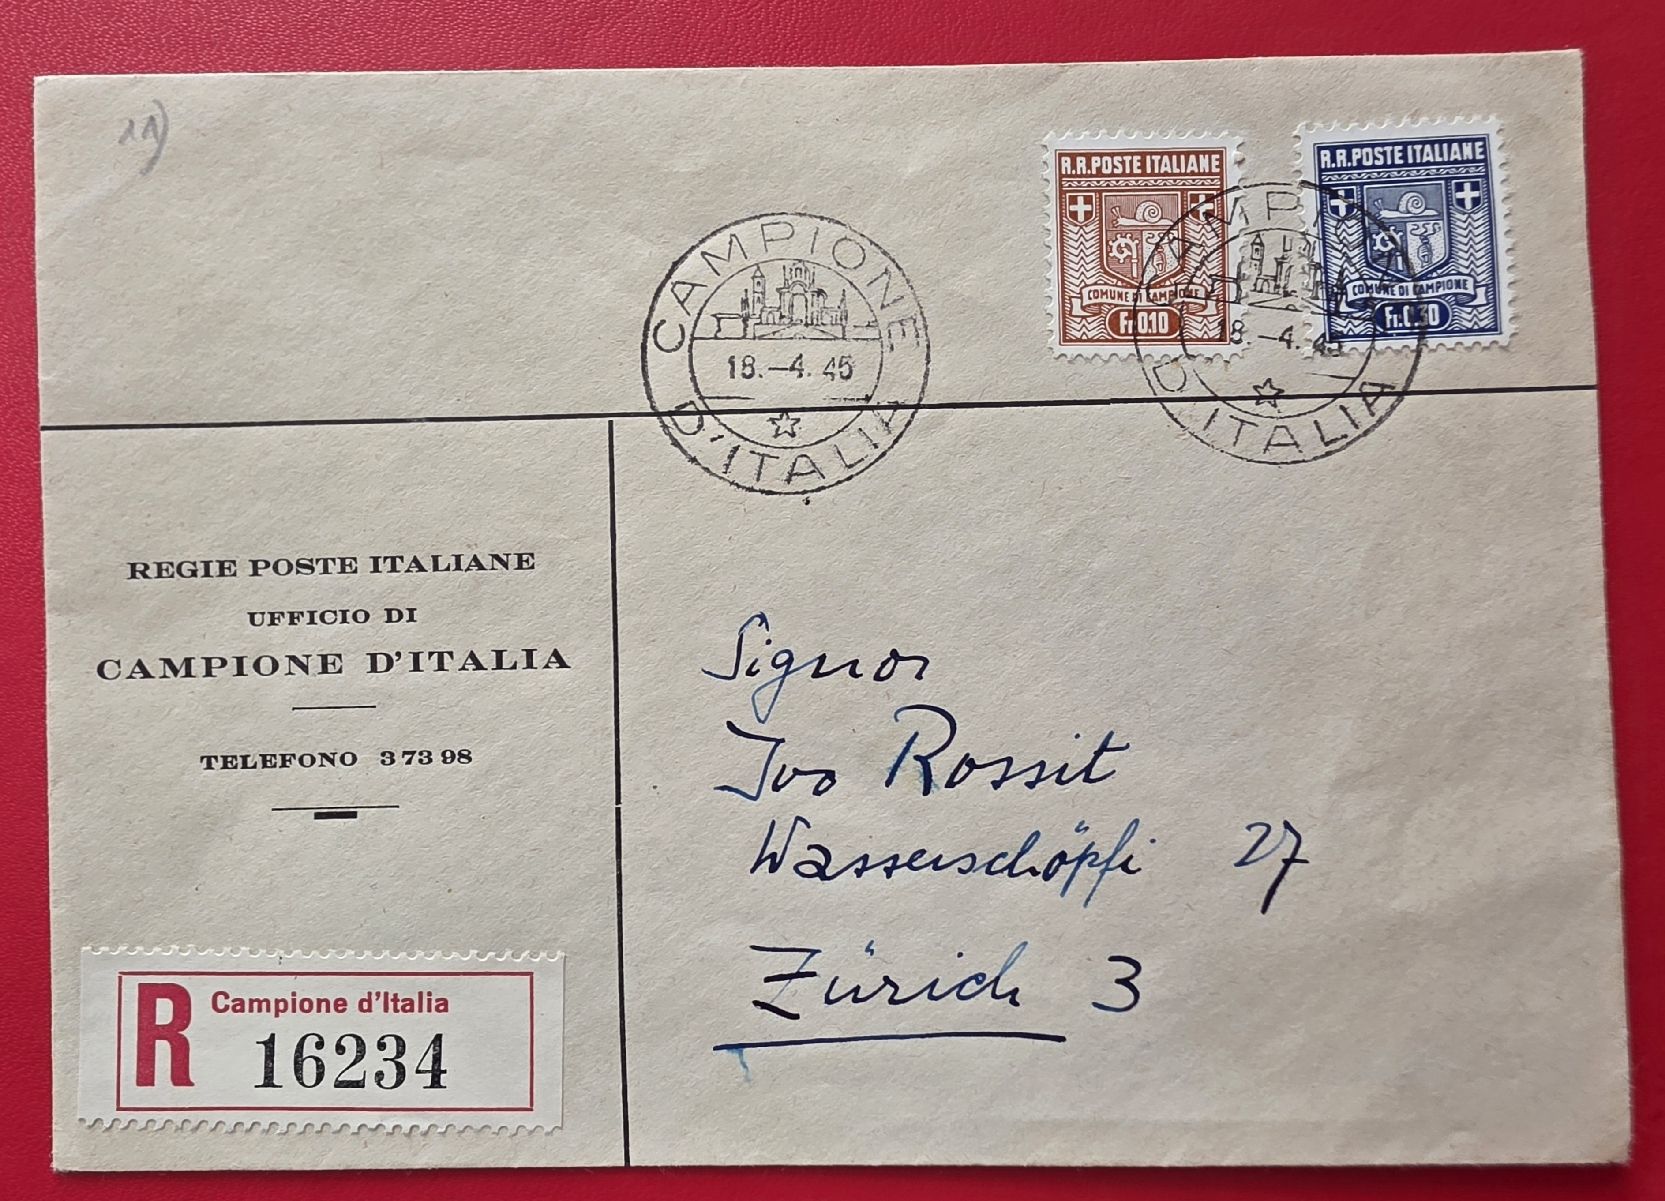 11)
R.R.POSTE ITALIANE
COMUNE DI CAMPIONE
Fr.0.10
R.R.POSTE ITALIANE
COMUNE DI CAMPIONE
Fr.0.30
CAMPIONE
18.-4.45
D'ITALIA
CAMPIONE
18.-4.45
D'ITALIA
REGIE POSTE ITALIANE
UFFICIO DI
CAMPIONE D'ITALIA
TELEFONO 3 73 98
Signor
Ivo Rossit
Wasserschöpfi 27
Zürich 3
R Campione d'Italia
16234